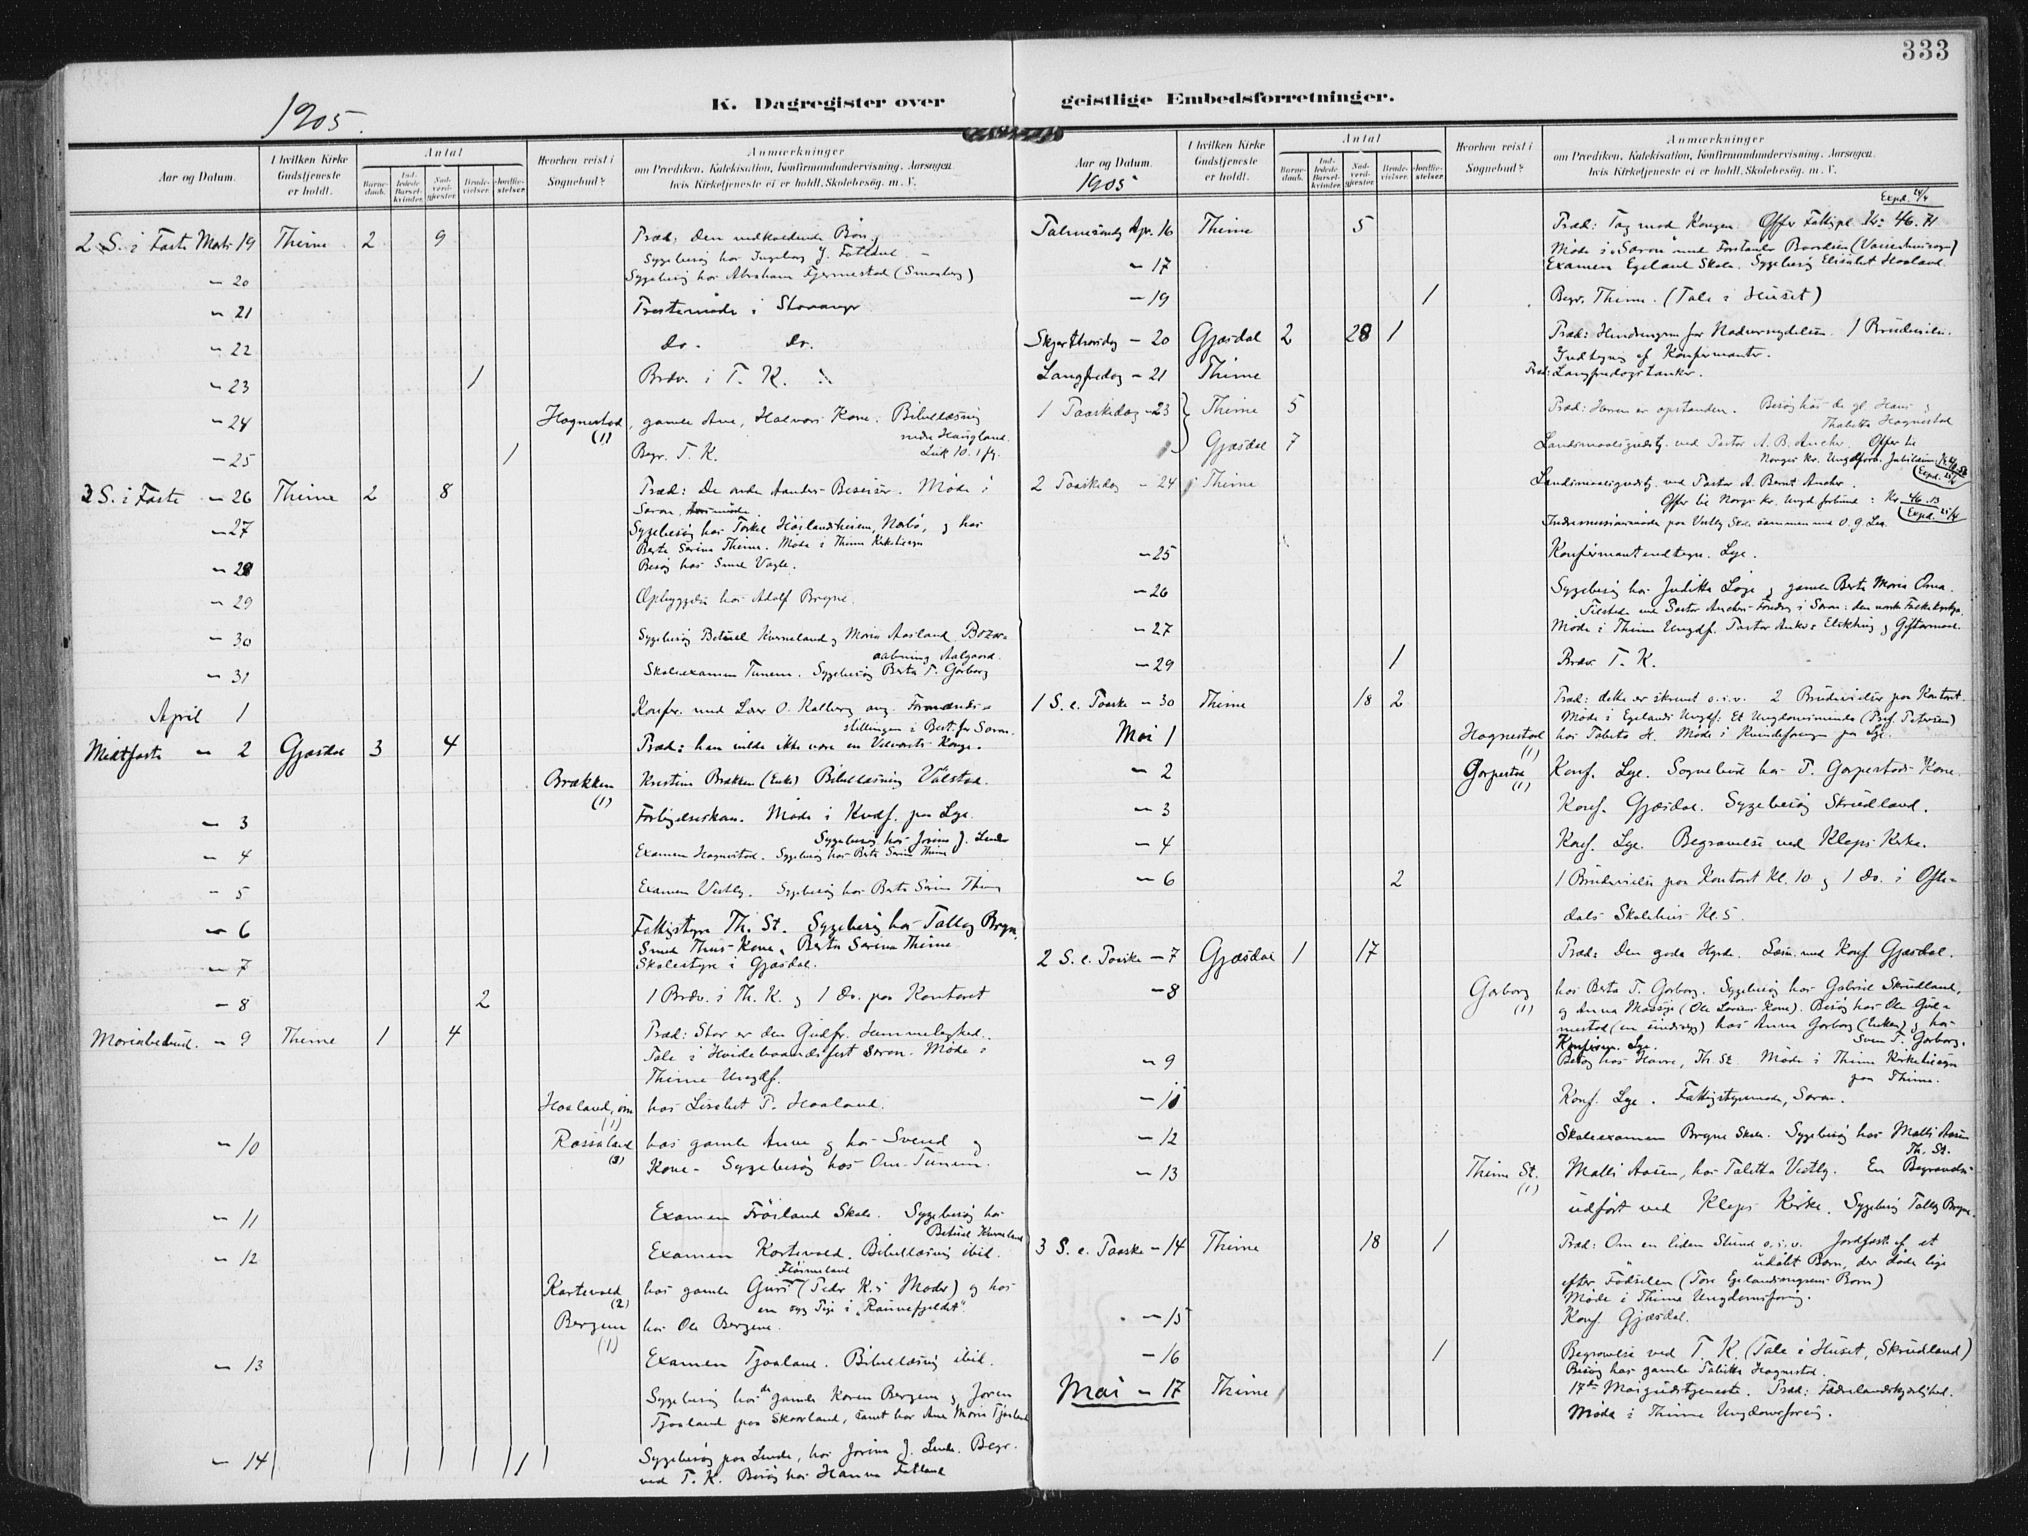 333
K. Dagregister over geistlige Embedsforretninger.
1905.
Aar og Datum.
I hvilken Kirke Gudstjeneste er holdt.
Antal
Barnedaab.
Indledede Barselkvinder.
Nadverdgjester
Brudevielser
Jordfæstelser
Hvorhen reist i Sognebud?
Anmærkninger
om Prædiken, Katekisation, Konfirmandundervisning, Aarsagen hvis Kirketjeneste ei er holdt, Skolebesøg, m. V.
2 S. i Faste Marts 19 Thime 2 9 Præd: Den vedholdende Bøn
Sygebesøg hos Ingeborg J. Fotland
- 20 Sygebesøg hos Abraham Fjermestad
- 21 Prestemøde i Stavanger
- 22 do. do.
- 23 1 Brdv. i T. K.
- 24 Hognestad (1) gamle Ane, Halvors Kone. Bibellæsning
nedre Haugland. Luk 10. 1 flg.
- 25 1 Begr. T. K.
3 S. i Faste - 26 Thime 2 8 Præd: De onde Aanders Besøg. Møde i
Saron.
- 27 Sygebesøg hos Torkel Høilandsheien, Nærbø, og hos
Berte Serina Thime. Møde i Thime
- 28 Besøg hos Smed Vagle.
- 29 Opbyggelse hos Adolf Bryne.
- 30 Sygebesøg Betuel Kverneland og Maria Aasland. Bazar-
aabning Aalgaard.
- 31 Skoleexamen Tunem. Sygebesøg Berta T. Garborg
April 1 Konfer. med Lærer O. Kalberg ang. Formands-
stillingen i Best. for Saron.
Midtfaste - 2 Gjæsdal 3 4 Præd: han vilde ikke være en Konge.
Brækken (1) Kristine Brækken (Enke) Bibellæsning Vålstad.
- 3 Forligelseskom. Møde i Kvdf. paa Lye.
Sygebesøg hos Jorine J. Lende
- 4 Examen Hognestad. Sygebesøg hos Berte Serine Thime
- 5 Examen Vestly. Sygebesøg hos Berte Serine Thime
- 6 Fattigstyre Th. St. Sygebesøg hos Talleg Bryne,
Smed Kone, Berta Serena Thime
- 7 Skolestyre i Gjæsdal.
- 8 2 1 Brdv. i Th. K. og 1 do. paa Kontoret
Mariæbebud. - 9 Thime 1 4 Præd: Stor er den Gudfr. Hemmelighed.
Tale i Hvidebaandsfest Saron. Møde i
Thime Ungdf.
Haaland (1) hos Lisebet T. Haaland.
- 10 Rossaland (3) hos gamle Anne og hos Svend og
Kone. Sygebesøg hos Tunem.
- 11 Examen Frøiland Skole. Sygebesøg hos
Betuel Kverneland
- 12 Examen Kartevold. Bibellæsning ibid.
Kartevold (2) hos gamle Guri (Peder K.s Moder) og hos
en syg Pige i "Ravnefjeldet"
Bergem (1) hos Ole Bergene.
- 13 Examen Tjaaland. Bibellæsning ibid.
Sygebesøg hos gamle Karen Bergem og Joren
Tjaaland paa Skaarland, samt hos Ane Maria Tjaaland
- 14 1 Sygebesøg paa Lende, hos Jorina J. Lende. Begr.
ved T. K. Besøg hos Hanna Fotland
Aar og Datum.
1905
I hvilken Kirke Gudstjeneste er holdt.
Antal
Barnedaab.
Indledede Barselkvinder.
Nadverdgjester
Brudevielser
Jordfæstelser
Hvorhen reist i Sognebud?
Anmærkninger
om Prædiken, Katekisation, Konfirmandundervisning, Aarsagen hvis Kirketjeneste ei er holdt, Skolebesøg, m. V.
Palmesøndag Apr. 16 Thime 5 Præd: Tag mod Kongen. Offer Kr. 46.71
Møde i "Saron" med Forstander
- 17 Examen Egeland Skole. Sygebesøg Elisabet Haaland.
- 19 1 Begr. Thime. (Tale i Huset)
Skjærthorsdag - 20 Gjæsdal 2 28 1 Præd: Hindringen for Nadvernydelsen. 1 Brudevielse.
Indtegn. af Konfirmanter.
Langfredag - 21 Thime Præd: Langfredagstanker.
1 Paaskedag - 23 Thime 5 Præd: Herren er opstanden. Besøg hos de gl. Hans og
Thalitta Hognestad
Gjæsdal 7 Landsmaalsgudstj. ved Pastor A. B. Anchr. Offer til
Norges kr. Ungdforb. Jubilæum
2 Paaskedag - 24 Thime Landsmaalsgudstj. ved Pastor A. Bernt Ancher.
Offer til Norges kr. Ungd.forbund: Kr 46.13
Indremissionsmøde paa Vestly Skole sammen med O. G. Lea.
- 25 Konfirmantindtegn. Lye.
- 26 Sygebesøg hos Juditta Lye og gamle Berte Maria Oma.
Tilstede ved Pastor Anchers Foredrag i Saron: den norske
- 27 Møde i Thime Ungdf. Pastor Anker: Elskhug og Giftarmaal.
- 29 1 Brdv. T. K.
1 S. e. Paaske - 30 Thime 18 2 Præd: dette er skrevet o.s.v. 2 Brudevielser paa Kontoret.
Møde i Egelands Ungdf: Et Ungdomsminde (Prof. Petersen)
Mai 1 Hognestad (1) hos Talitta H. Møde i Kvindeforeningen paa Lye.
- 2 Garpestad (1) Konf. Lye. Sognebud hos T. Garpestads Kone.
- 3 Konf. Gjæsdal. Sygebesøg Skrudland.
- 4 Konf. Lye. Begravelse ved Kleps Kirke.
- 6 2 1 Brudevielse paa Kontoret Kl. 10 og 1 do. i Ofte-
dals Skolehus Kl. 5.
2 S. e. Paaske - 7 Gjæsdal 1 17 Præd: Den gode Hyrde. Læsn. med Konf. Gjæsdal.
- 8 Garborg (1) hos Berta T. Garborg. Sygebesøg hos Gabriel Skrudland,
og Anna Mossige (Ole Kone). Besøg hos Ole
hos Anna Garborg (Enken) og hos
Sven T. Garborg.
Konfirm. Lye.
- 9 Besøg hos Th. St. Møde i Thime
paa Thime.
- 10 Konf. Lye. Fattigstyremøde, Saron.
- 12 Skoleexamen Bryne Skole. Sygebesøg hos Malli Aasen
Th. St.
- 13 Thime St. (1) Malli Aasen, hos Talitta Vestly. En Begravelse
udført ved Kleps Kirke. Sygebesøg Talleg Bryne.
3 S. e. Paaske - 14 Thime 18 1 Præd: Om en liden Stund o.s.v. Jordfæst. af et
udøbt Barn, der døde lige
efter Fødselen (Tore Egelandsmyrens Barn)
Møde i Thime Ungdomsforening.
- 15 Konf. Gjæsdal.
- 16 1 Begravelse ved T. K. (Tale i Huset, Skrudland)
Besøg hos gamle Talitta Hognestad.
Mai - 17 Thime 17de Maigudstjeneste. Præd: Fædrelandskjærlighed.
Møde i Thime Ungdomsforening.